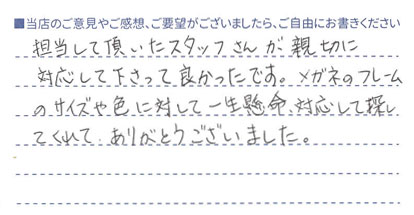 ■当店のご意見やご感想、ご要望がございましたら、ご自由にお書きください
担当して頂いたスタッフさんが親切に
対応して下さって良かったです。メガネのフレーム
のサイズや色に対して一生懸命、対応して探し
てくれて、ありがとうございました。